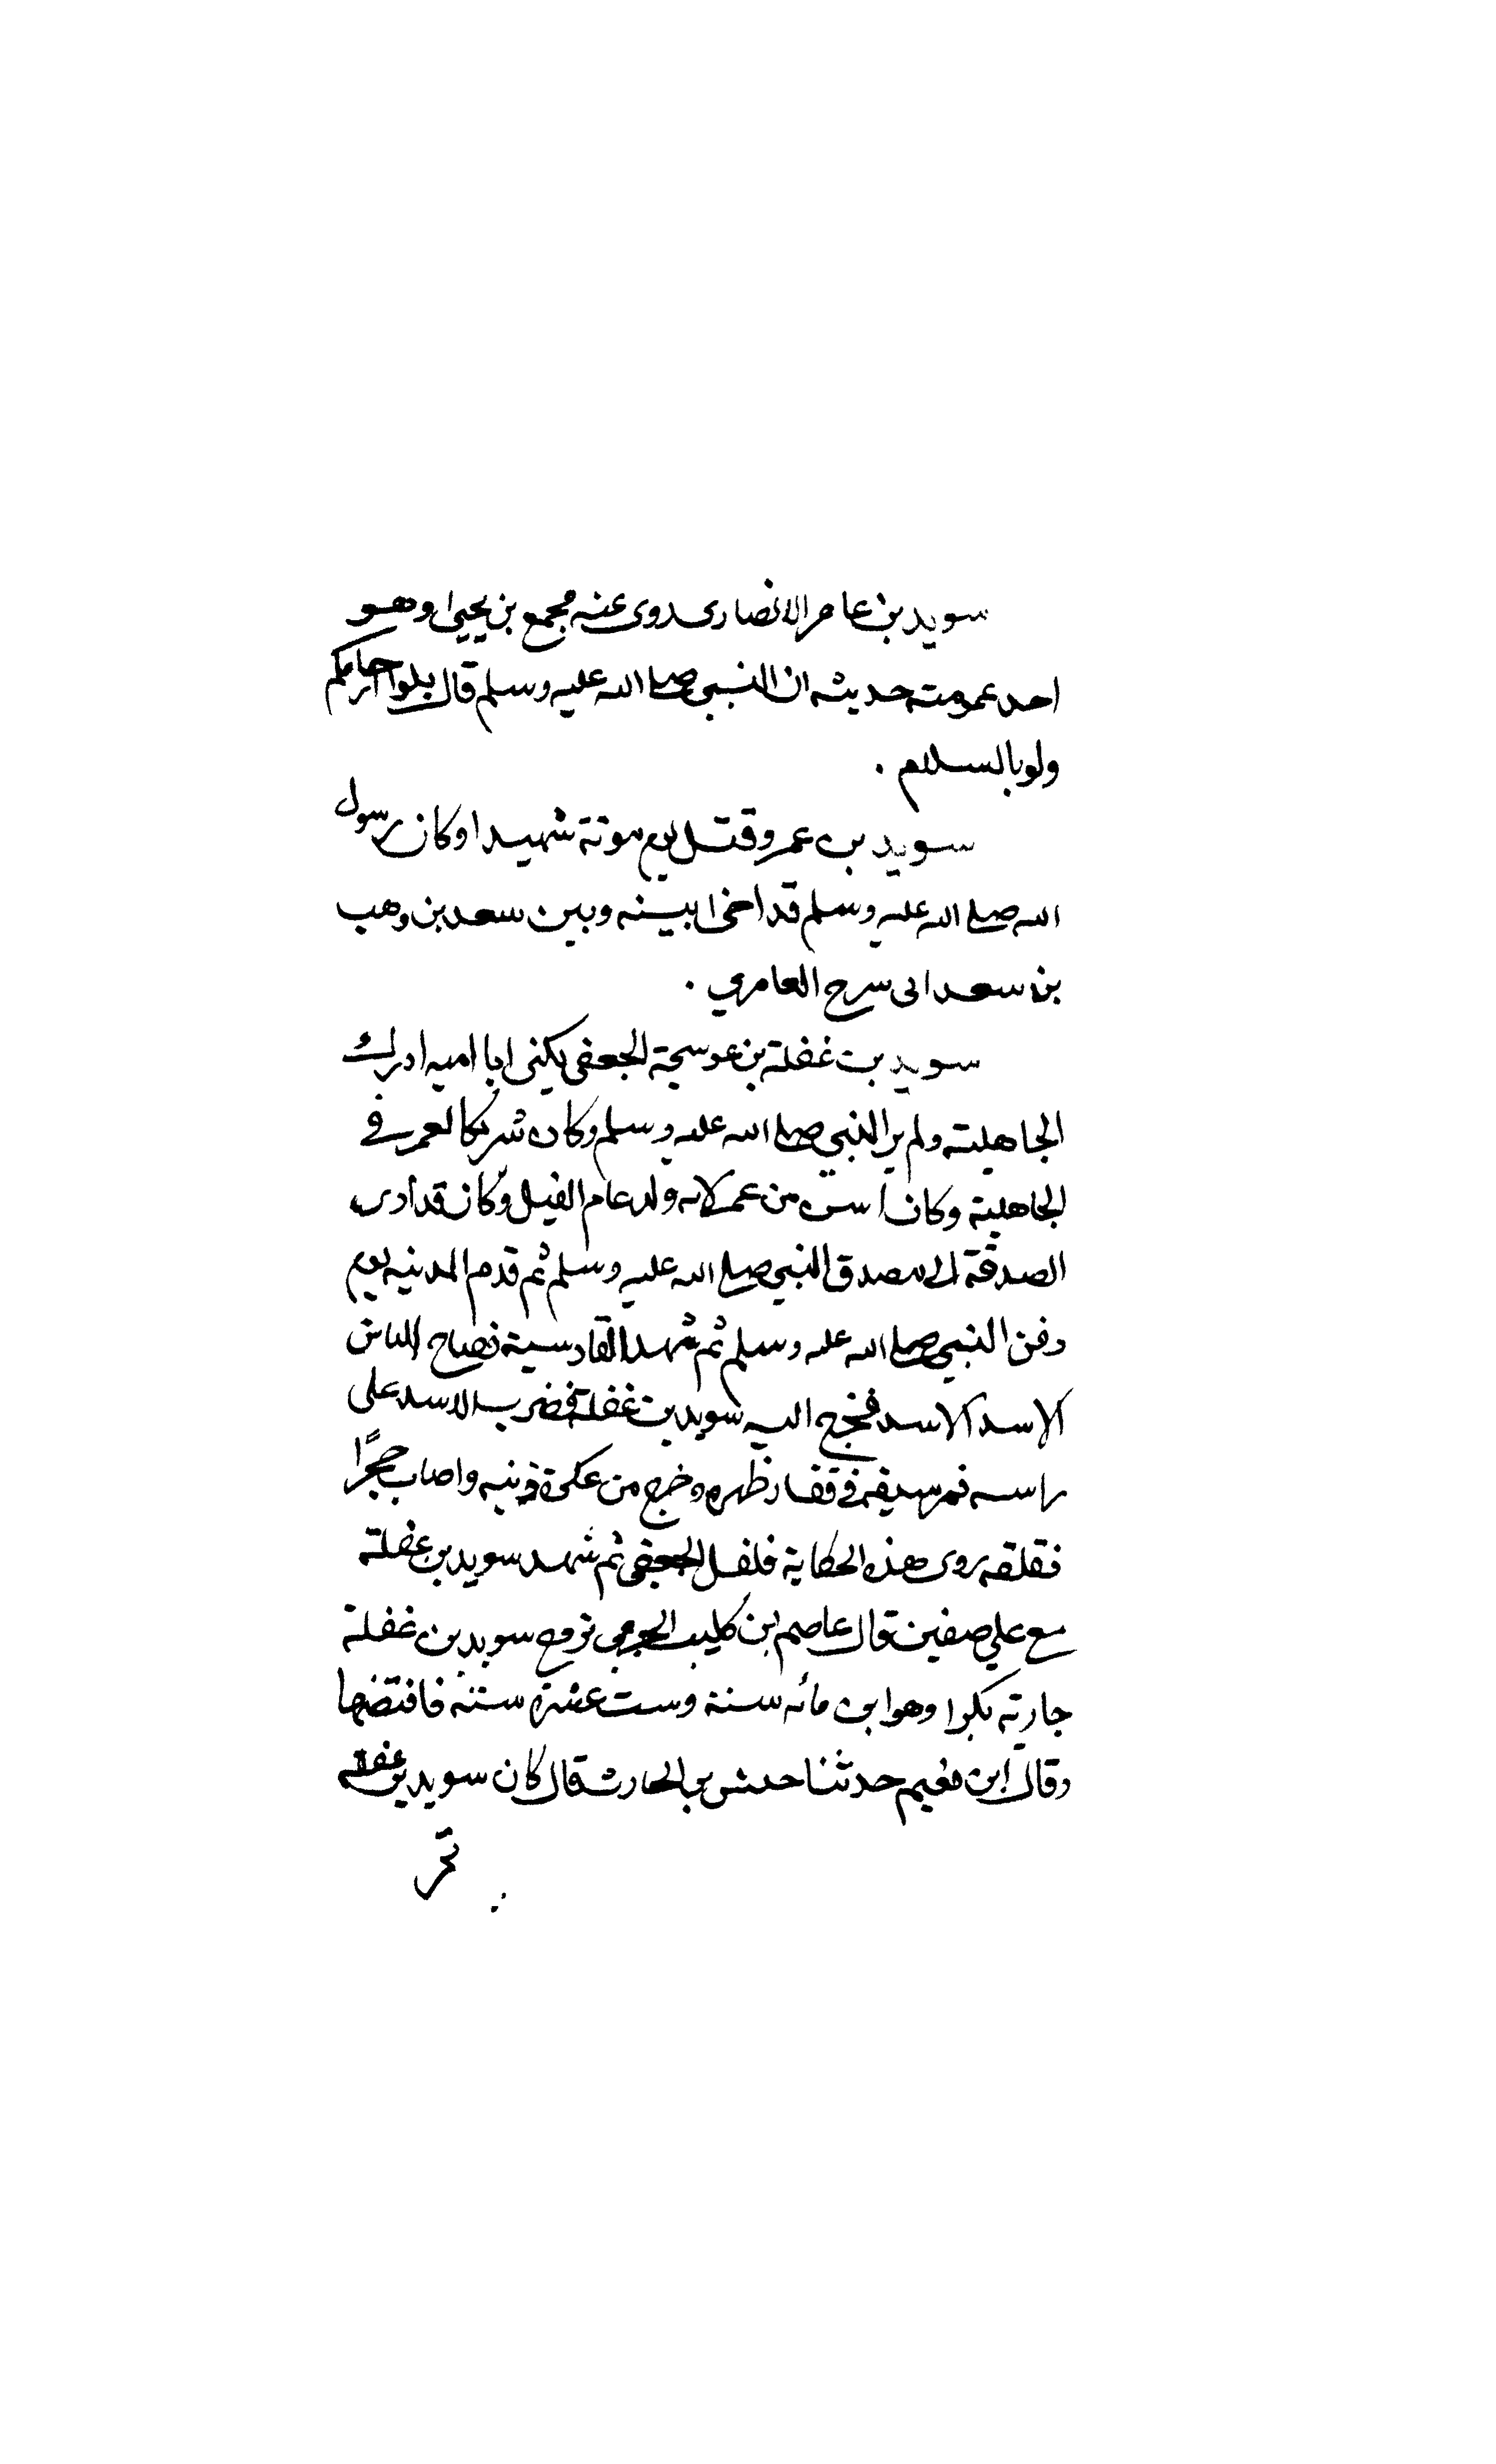 سويد بن عامر الانصارى روى عنه مجمع بن يحيى وهو
احد عمومته حديثه ان النبي صلى الله عليه وسلم قال بلوا ارحامكم
ولو بالسلام .
سويد بن عمر وقتل يوم موتة شهيدا وكان رسول
الله صلى الله عليه وسلم قد اخى بينه وبين سعد بن وهب
بن سعد ابى سرح العامري .
سويد بن غفلة بن عوسجة الجعفى يكنى ابا اميه ادرك
الجاهلية ولم ير النبي صلى الله عليه وسلم وكان شريكا لعمر في
الجاهلية وكان اسن من عمر لانه ولد عام الفيل وكان قد ادى
الصدقة الى مصدق النبي صلى الله عليه وسلم ثم قدم المدينه يوم
دفن النبي صلى الله عليه وسلم ثم شهد القادسية فصاح الناس
الاسد الاسد فخرج اليه سويد بن غفلة فضرب الاسد على
راسه فمر سيفه في فقار ظهره وخرج من عكوة ذنبه واصاب حجرًا
ففلقه روى هذه الحكاية فلفل الجعفى ثم شهد سويد بن غفلة
مع علي صفين قال عاصم ابن كليب الجرمي تزوج سويد بن غفلة
جارية بكرا وهو ابن مائه سنة وست عشرة سنة فافتضها
وقال ابن نعيم حدثنا حنش بن الحارث قال كان سويد بن غفلة